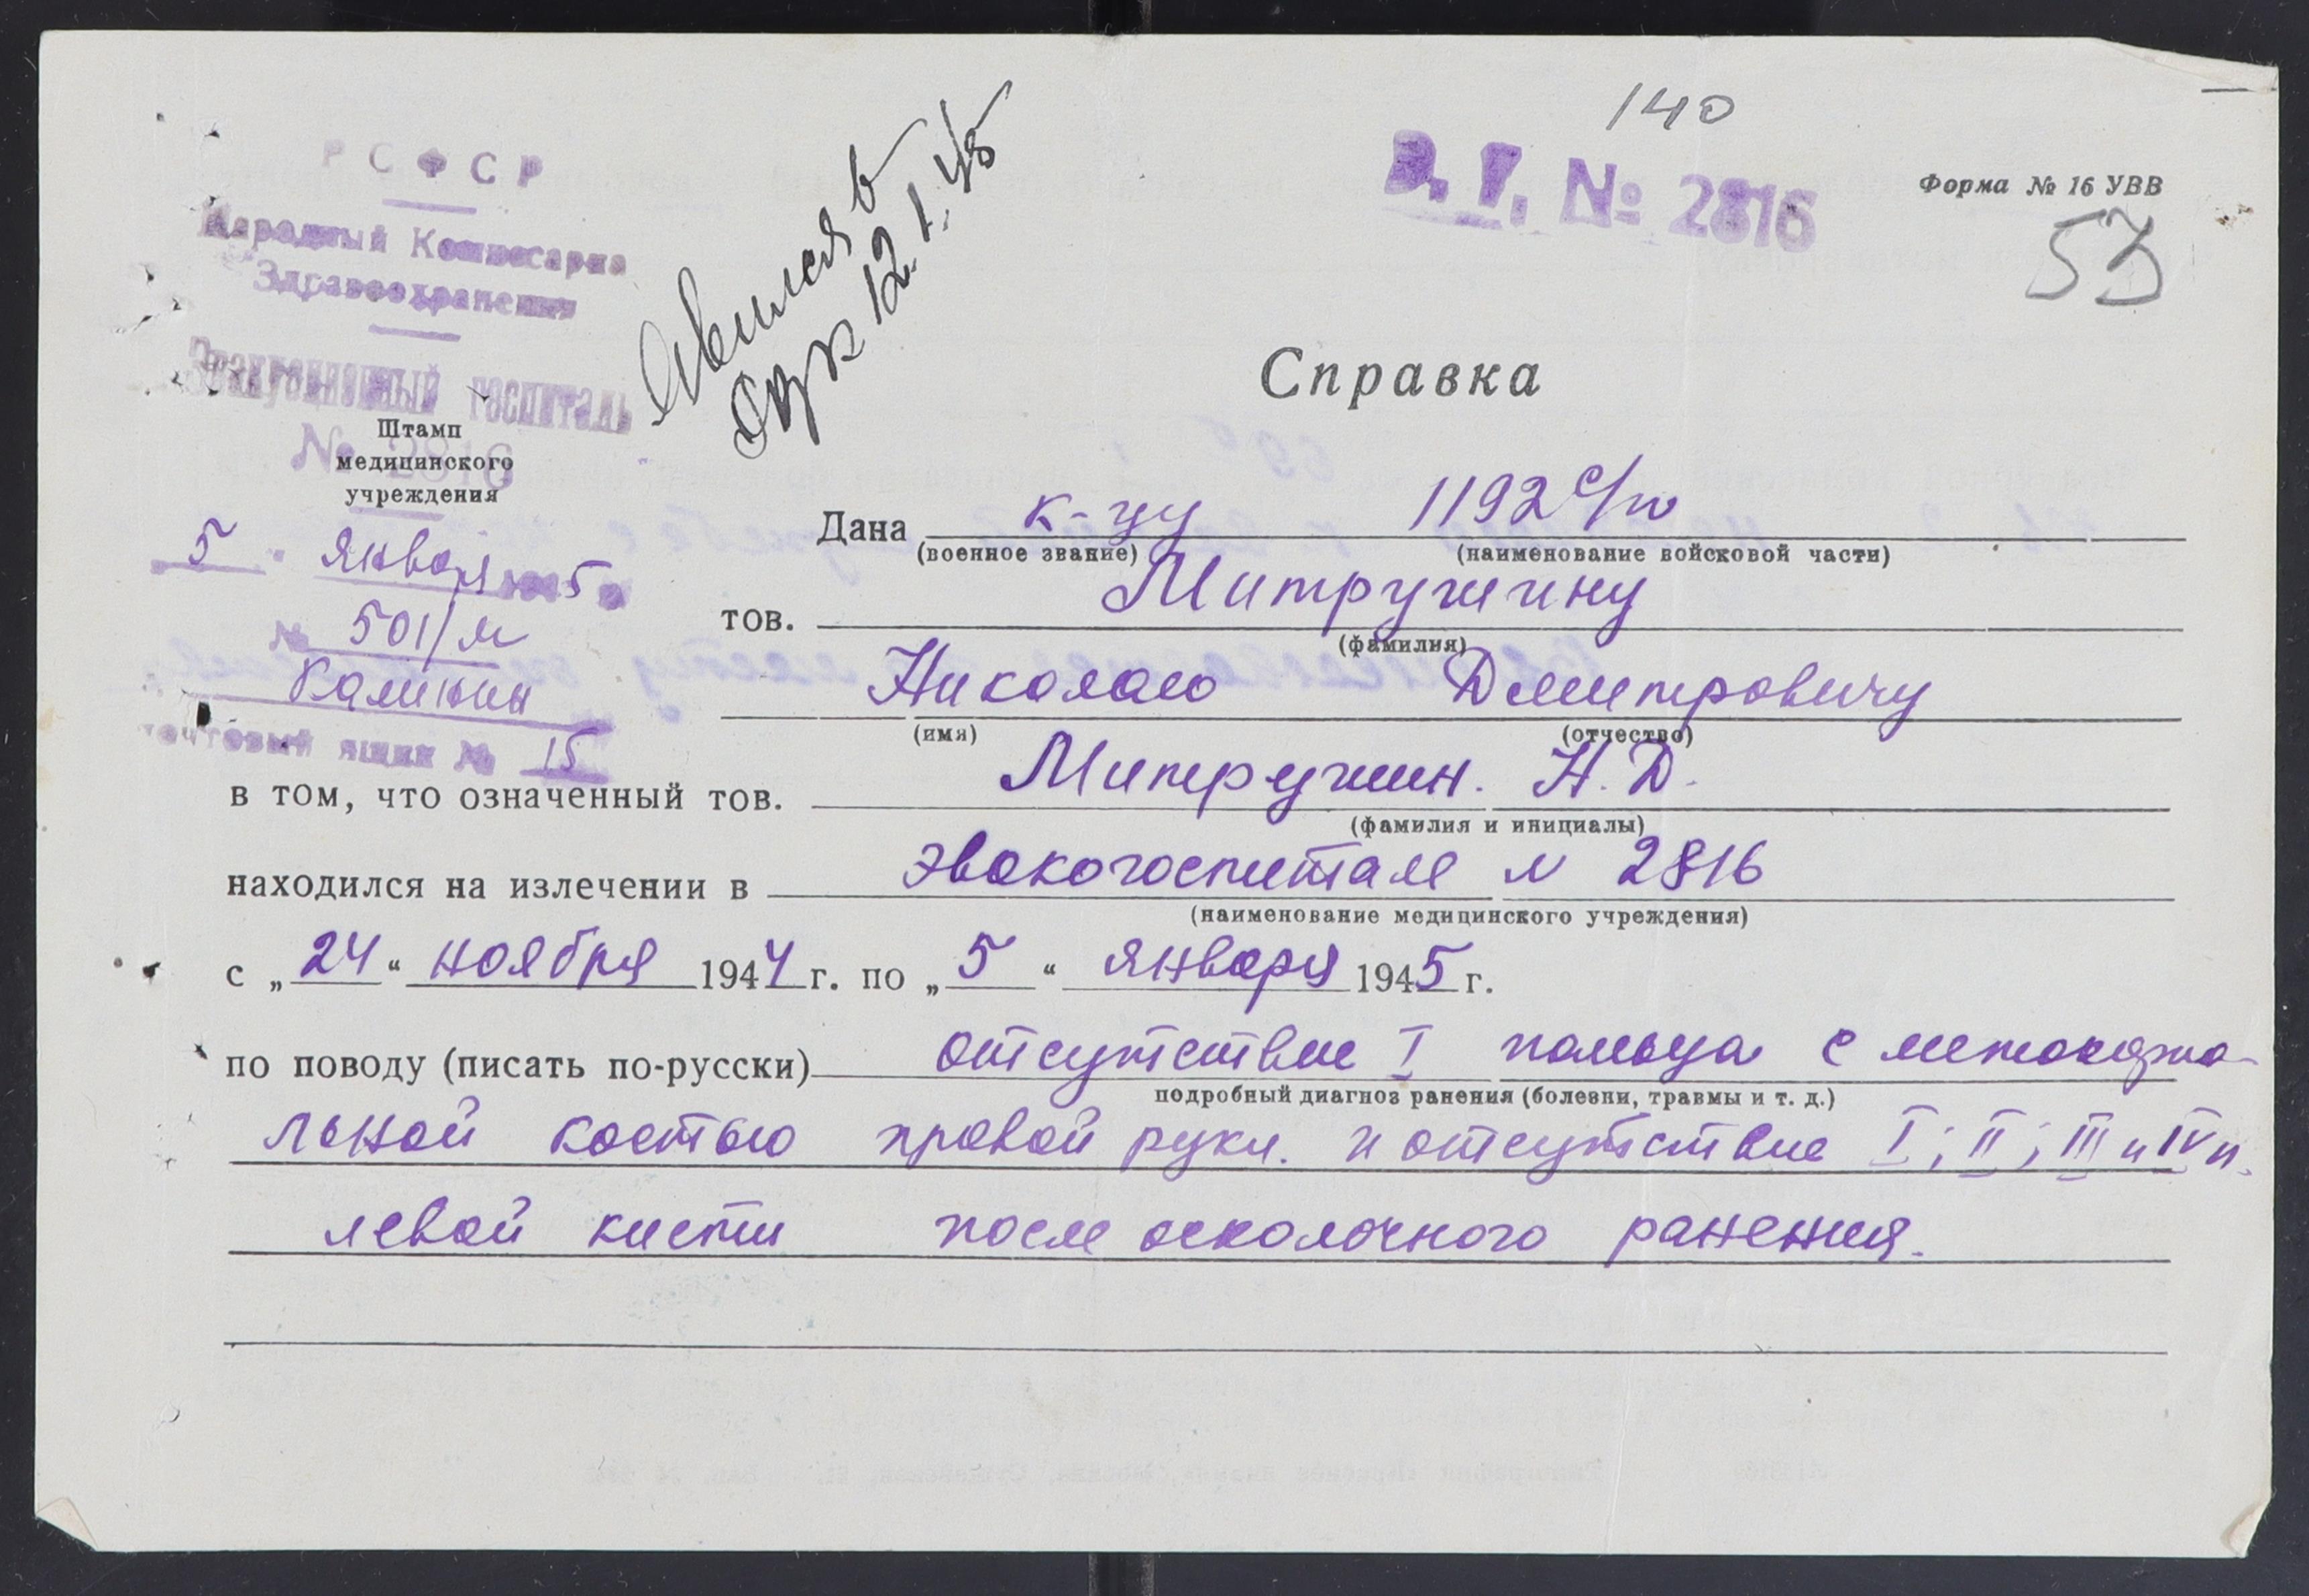 140
Э. Г. № 2816
Форма № 16 УВВ
53
Р С Ф С Р
Народный Комиссариа
Здравоохранения
Эвакуационный госпиталь
№ 2816
Штамп
медицинского
учреждения
5 января 5
№ 501/м
Калинин
почтовый ящик № 15
Явился в
12.1.45
Справка
Дана к-цу 1192 с/п
(военное звание) (наименование войсковой части)
тов. Митрушину
(фамилия)
Николаю Дмитровичу
(имя) (отчество)
в том, что означенный тов. Митрушин. Н. Д.
(фамилия и инициалы)
находился на излечении в эвакогоспитале N 2816
(наименование медицинского учреждения)
с „24“ ноября 1944 г. по „5“ января 1945 г.
по поводу (писать по-русски) отсутствие I пальца с
подробный диагноз ранения (болезни, травмы и т. д.)
льной костью правой руки. и отсутствие I; II; III и IV п.
левой кисти после осколочного ранения.